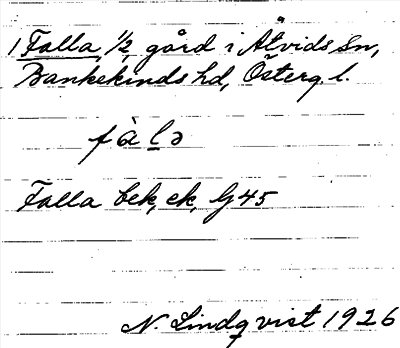 1 Falla, 1/2, gård i Åtvids sn,
Bankekinds hd, Österg. l.
fàlə
Falla bek, ek, G 45
N. Lindqvist 1926